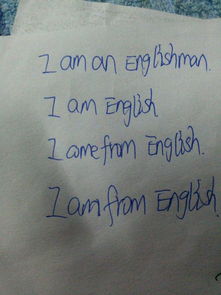 I am an Englishman.
I am English
I come from English.
I am from English.